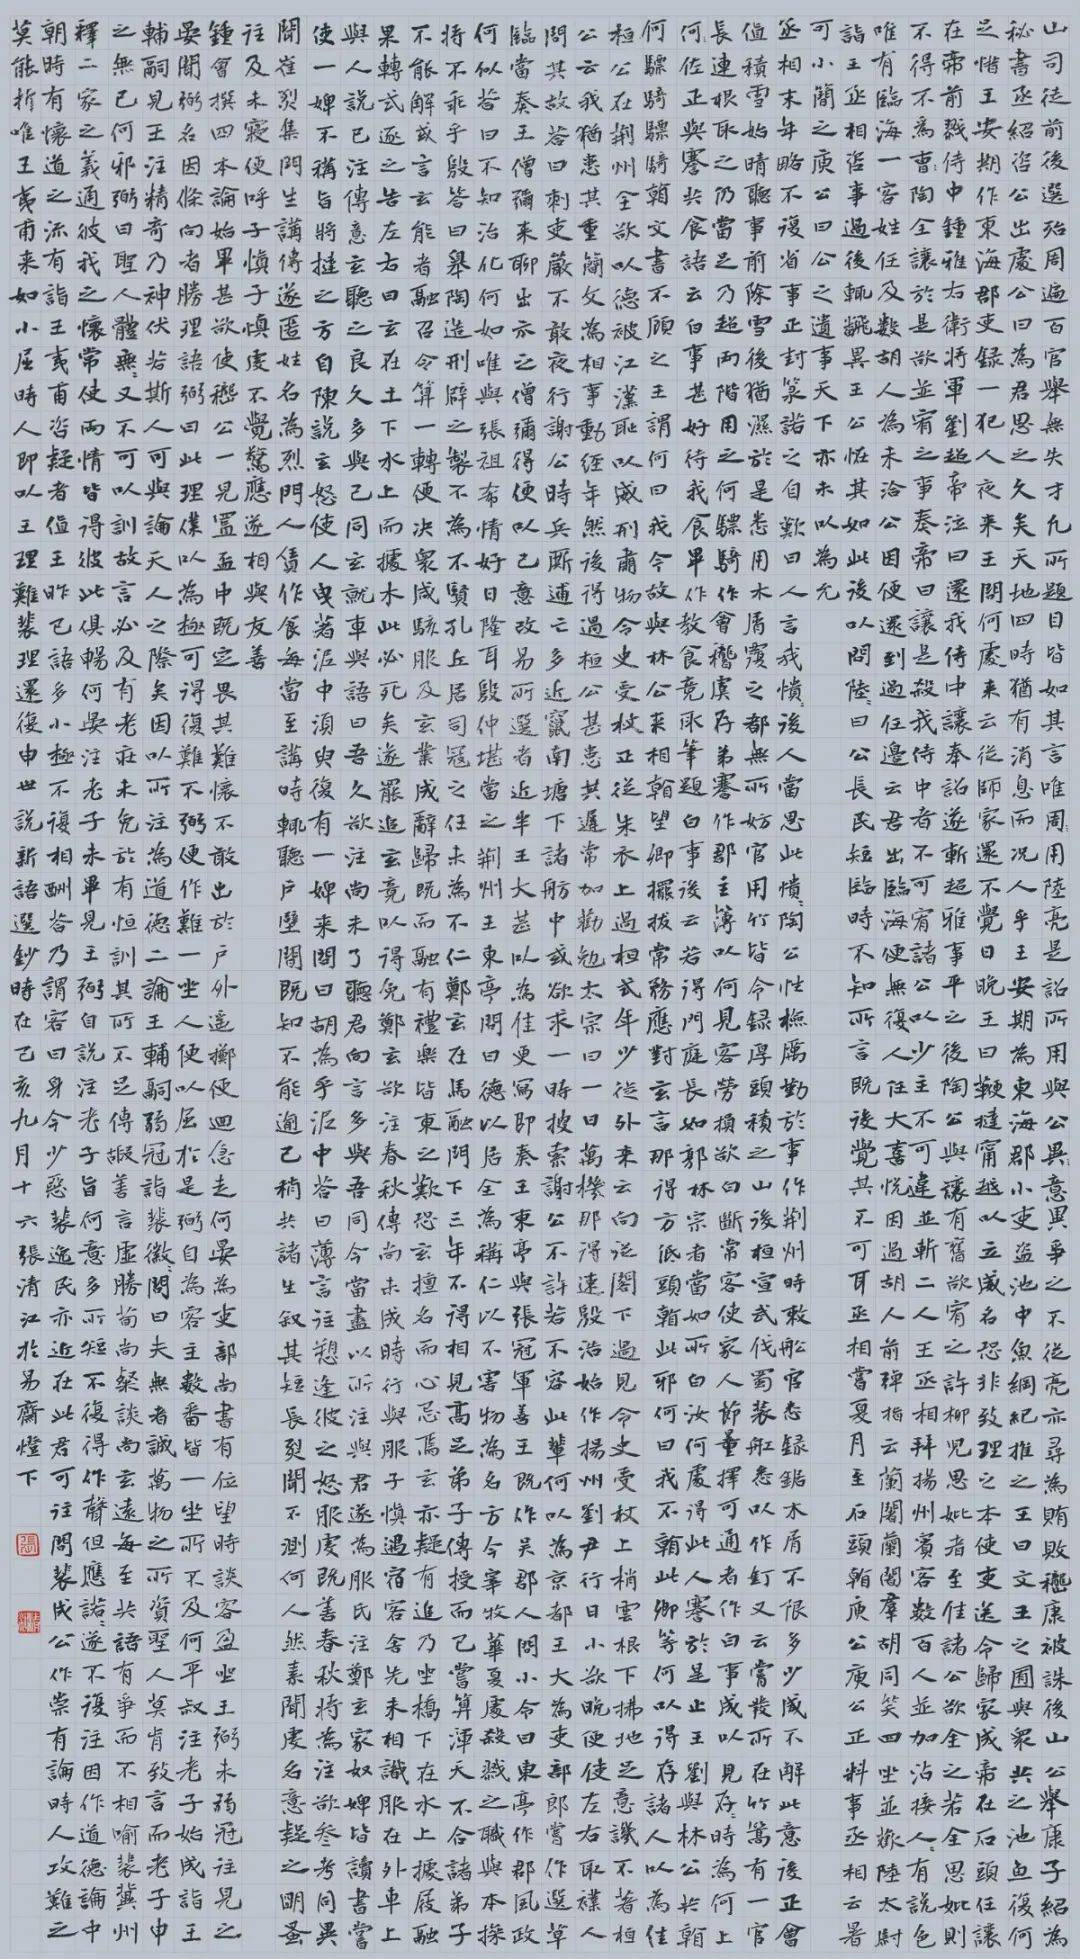 山司徒前後選殆周遍百官舉無失才凡所題目皆如其言唯用陸亮是詔所用與公異意異爭之不從亮亦尋為賄敗嵇康被誅後山公舉康子紹為
秘書丞紹咨公出處公曰為君思之久矣天地四時猶有消息而況人乎王安期為東海郡小吏盜池中魚綱紀推之王曰文王之囿與眾共之池魚復何
足惜王安期作東海郡吏錄一犯人夜來王問何處來云從師家還不覺日晚王曰鞭撻甯越以立威名恐非致理之本使吏送令歸家成帝在石頭任讓
在帝前戮侍中鍾雅右衛將軍劉超帝泣曰還我侍中讓奉詔遂斬超雅事平之後陶公與讓有舊欲宥之許柳兒思妣者至佳諸公欲全之若全思妣則
不得不為陶全讓於是欲並宥之事奏帝曰讓是殺我侍中者不可宥諸公以少主不可違並斬二人王丞相拜揚州賓客數百人並加沾接人人有說色
唯有臨海一客姓任及數胡人為未洽公因便還到過任邊云君出臨海便無復人任大喜悅因過胡人前彈指云蘭闍蘭闍群胡同笑四坐並歡陸太尉
詣王丞相咨事過後輒翻異王公怪其如此後以問陸陸曰公長民短臨時不知所言既後覺其不可耳丞相嘗夏月至石頭看庾公庾公正料事丞相云暑
可小簡之庾公曰公之遺事天下亦未以為允
丞相末年略不復省事正封籙諾之自歎曰人言我憒憒後人當思此憒憒陶公性檢厲勤於事作荊州時敕船官悉錄鋸木屑不限多少咸不解此意後正會
值積雪始晴聽事前除雪後猶濕於是悉用木屑覆之都無所妨官用竹皆令錄厚頭積之山後桓宣武伐蜀裝船悉以作釘又云嘗發所在竹篙有一官
長連根取之仍當足乃超兩階用之何驃騎作會稽虞存弟謇作郡主簿以何見客勞損欲白斷常客使家人節量擇可通者作白事成以見存存時為何上
何佐正與謇共食語云白事甚好待我食畢作教食竟取筆題白事後云若得門庭長如郭林宗者當如所白汝何處得此人謇於是止王劉與林公共看
何驃騎驃騎看文書不顧之王謂何曰我今故與林公來相看望卿擺撥常務應對玄言那得方低頭看此邪何曰我不看此卿等何以得存諸人以為佳
桓公在荊州全欲以德被江漢恥以威刑肅物令史受杖正從朱衣上過桓式年少從外來云向從閣下過見令史受杖上捎雲根下拂地足意譏不著桓
公云我猶患其重簡文為相事動經年然後得過桓公甚患其遲常加勸勉太宗曰一日萬機那得速殷浩始作揚州劉尹行日小欲晚便使左右取襆人
問其故答曰刺史嚴不敢夜行謝公時兵廝逋亡多近竄南塘下諸舫中或欲求一時搜索謝公不許若不容此輩何以為京都王大為吏部郎嘗作選草
臨當奏王僧彌來聊出示之僧彌得便以己意改易所選者近半王大甚以為佳更寫即奏王東亭與張冠軍善王既作吳郡人問小令曰東亭作郡風政
何似答曰不知治化何如唯與張祖希情好日隆耳殷仲堪當之荊州王東亭問曰德以居全為稱仁以不害物為名方今宰牧華夏處殺戮之職與本操
將不乖乎殷答曰皋陶造刑辟之製不為不賢孔丘居司寇之任未為不仁鄭玄在馬融門下三年不得相見高足弟子傳授而已嘗算渾天不合諸弟子
不能解或言玄能者融召令算一轉便決眾咸駭服及玄業成辭歸既而融有禮樂皆東之歎恐玄擅名而心忌焉玄亦疑有追乃坐橋下在水上據屐融
果轉式逐之告左右曰玄在土下水上而據木此必死矣遂罷追玄竟以得免鄭玄欲注春秋傳尚未成時行與服子慎遇宿客舍先未相識服在外車上
與人說已注傳意玄聽之良久多與己同玄就車與語曰吾久欲注尚未了聽君向言多與吾同今當盡以所注與君遂為服氏注鄭玄家奴婢皆讀書嘗
使一婢不稱旨將撻之方自陳說玄怒使人曳著泥中須臾復有一婢來問曰胡為乎泥中答曰薄言注愬逢彼之怒服虔既善春秋將為注欲參考同異
聞崔烈集門生講傳遂匿姓名為烈門人賃作食每當至講時輒聽戶壁間既知不能逾己稍共諸生敘其短長烈聞不測何人然素聞虔名意疑之明蚤
往及未寤便呼子慎子慎虔不覺驚應遂相與友善
鍾會撰四本論始畢甚欲使嵇公一見置盃中既定畏其難懷不敢出於戶外遙擲便回急走何晏為吏部尚書有位望時談客盈坐王弼未弱冠往見之
晏聞弼名因條向者勝理語弼曰此理僕以為極可得復難不弼便作難一坐人便以屈於是弼自為客主數番皆一坐所不及何平叔注老子始成詣王
輔嗣見王注精奇乃神伏若斯人可與論天人之際矣因以所注為道德二論王輔嗣弱冠詣裴徽問曰夫無者誠萬物之所資聖人莫肯致言而老子申
之無已何邪弼曰聖人體無無又不可以訓故言必及有老莊未免於有恒訓其所不足傅嘏善言虛勝荀尚粲談尚玄遠每至共語有爭而不相喻裴冀州
釋二家之義通彼我之懷常使兩情皆得彼此俱暢何晏注老子未畢見王弼自說注老子旨何意多所短不復得作聲但應諾諾遂不復注因作道德論中
朝時有懷道之流有詣王夷甫咨疑者值王昨已語多小極不復相酬答乃謂客曰身今少惡裴逸民亦近在此君可往問裴成公作崇有論時人攻難之
莫能折唯王夷甫來如小屈時人即以王理難裴理還復申世說新語選鈔時在己亥九月十六張清江於易齋燈下
張